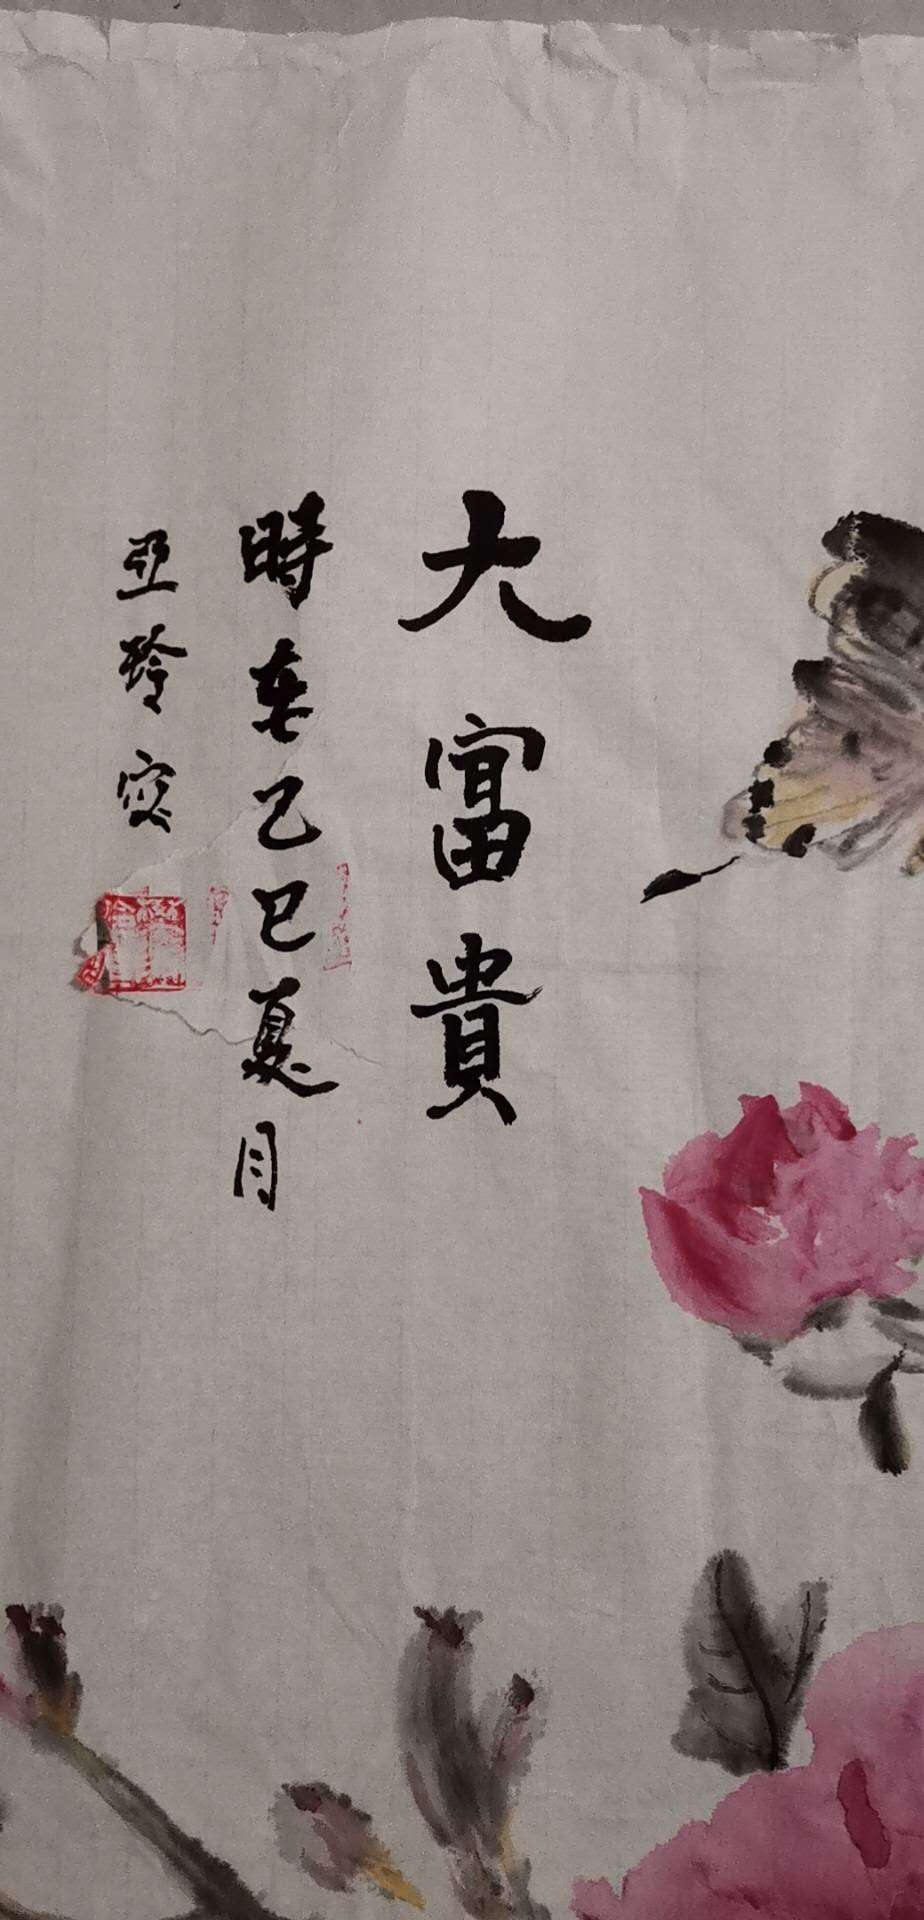 大富貴
時在乙巳夏月
亞玲寫